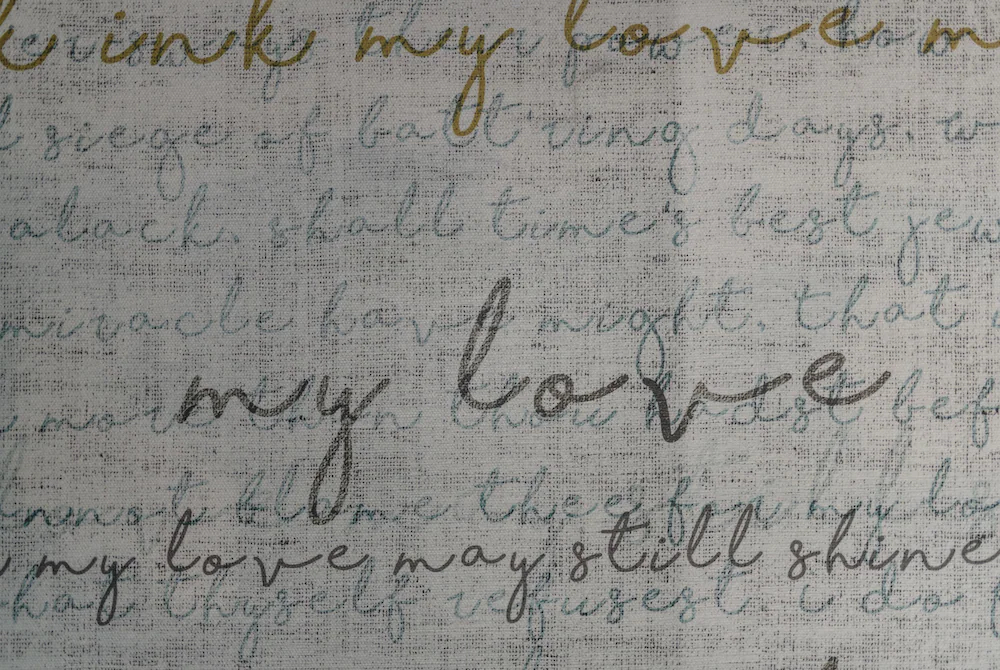 ink my love
siege of batt'ring days. w
alack. shall time's best jew
miracle have might. that
my love
more than thou hadst bef
blame thee for my lo
my love may still shine
thyself refusest. i do